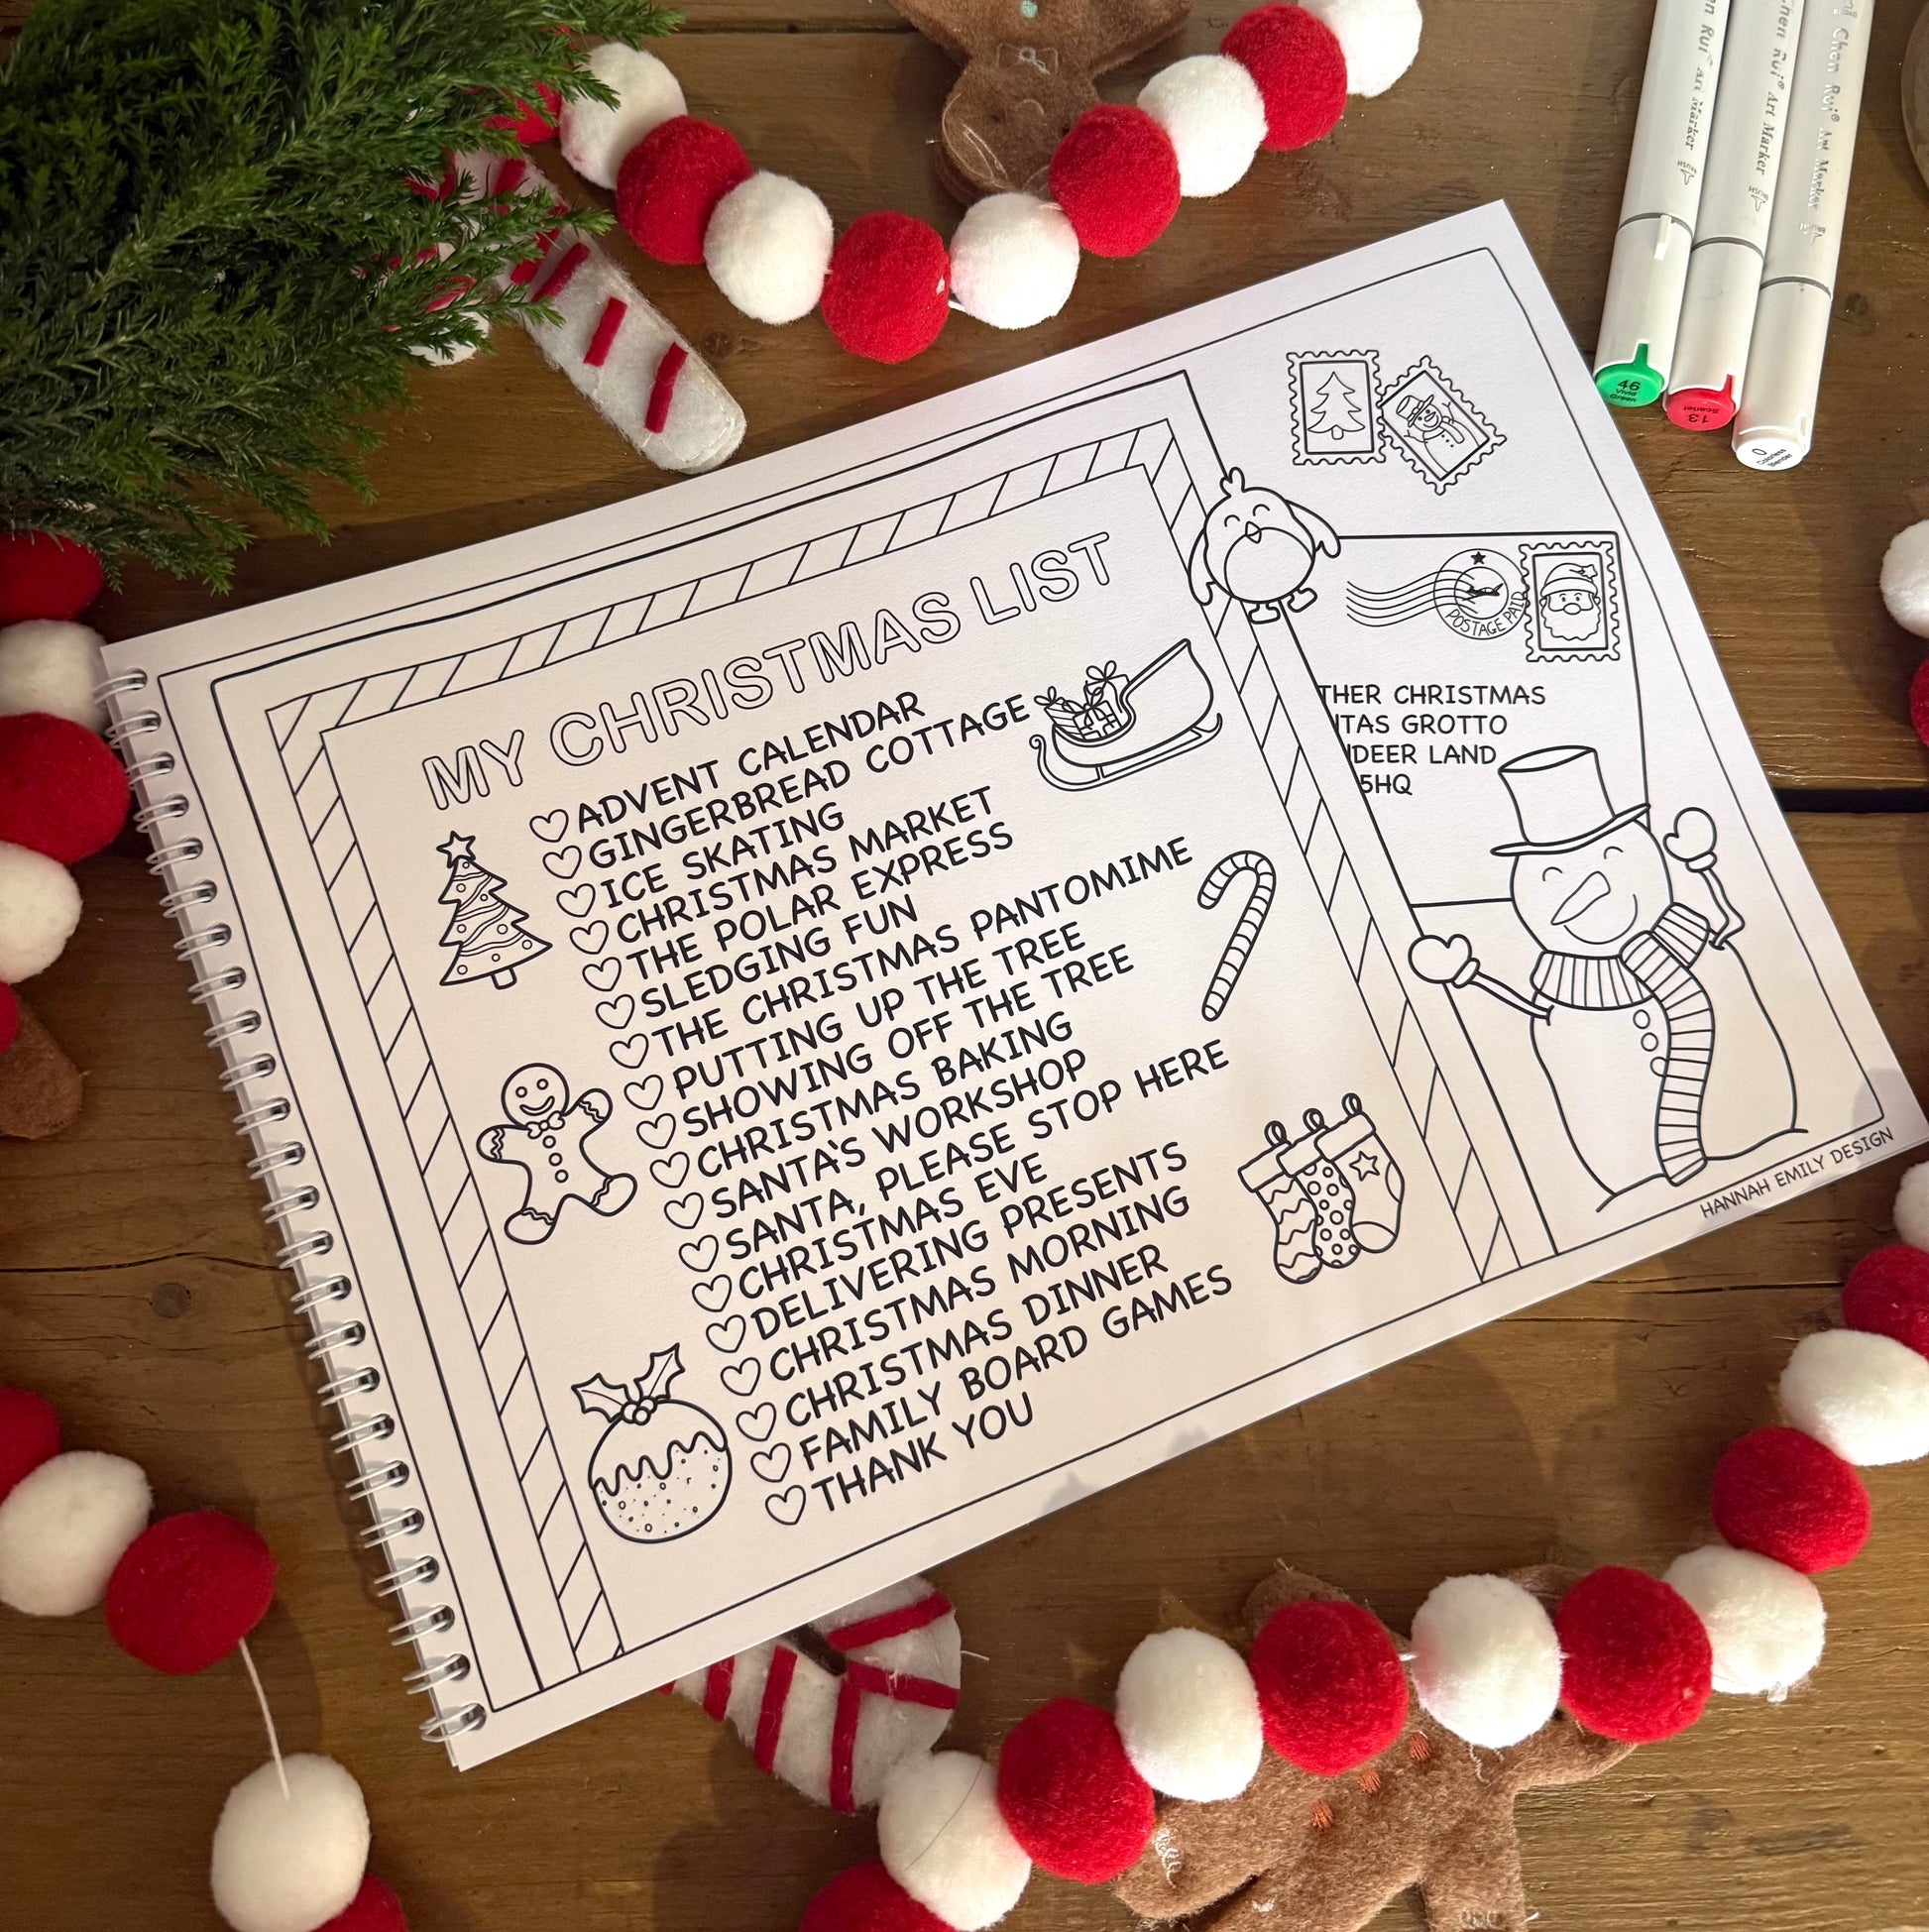 MY CHRISTMAS LIST
ADVENT CALENDAR
GINGERBREAD COTTAGE
ICE SKATING
CHRISTMAS MARKET
THE POLAR EXPRESS
SLEDGING FUN
THE CHRISTMAS PANTOMIME
PUTTING UP THE TREE
SHOWING OFF THE TREE
CHRISTMAS BAKING
SANTA'S WORKSHOP
SANTA, PLEASE STOP HERE
CHRISTMAS EVE
DELIVERING PRESENTS
CHRISTMAS MORNING
CHRISTMAS DINNER
FAMILY BOARD GAMES
THANK YOU
POSTAGE PAID
THER CHRISTMAS
ITAS GROTTO
DEER LAND
5HQ
HANNAH EMILY DESIGN
Rui® Art Marker
BRUSH
Chen Rui® Art Marker
BRUSH
Chen Rui® Art Marker
46
Vivid Green
13
Scarlet
0
Colorless Blender